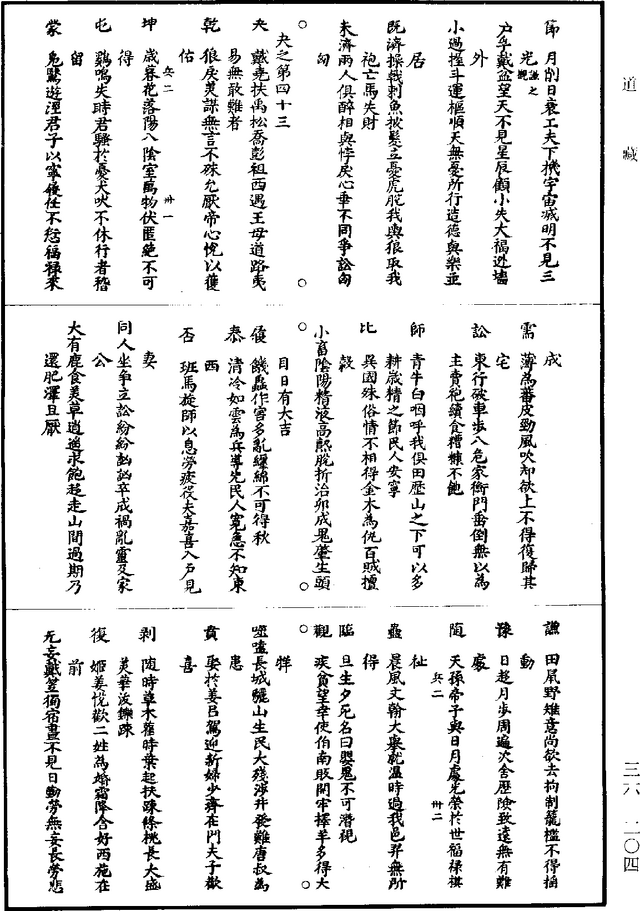 道藏
節　月削日衰工夫下機宇宙滅明不見三
光　謙之觀
户孚戴盆望天不見星辰顧小失大福逃墻
外
小過握斗運樞順天無憂所行造德與樂並
居
既濟操戟刺魚披髮立憂虎脫我與狼取我
袍亡馬失財
未濟兩人俱醉相與悖戾心乖不同爭訟匈
匈
夬之第四十三
夬　戴堯扶禹松喬彭祖西遇王母道路夷
易無敢難者
乾　狼戾美謀無言不殊允厭帝心悅以獲
佑
兵二　卅一
坤　歲暮花落陽入陰室萬物伏匿絶不可
得
屯　鷄鳴失時君騷於憂犬吠不休行者稽
留
蒙　鳧鷖遊涇君子以寧復任不愆福祿來
成
需　薄為蕃皮勁風吹却欲上不得復歸其
宅
訟　東行破車步入危家衡門垂倒無以為
主賣袍續食糟糠不飽
師　青牛白咽呼我俱田歷山之下可以多
耕歲精之節民人安寧
比　異國殊俗情不相得金木為仇百賊擅
殺
小畜陰陽精液高熱脫折治卯成鬼肇生頭
目日有大吉
復　饑蟲作害多亂纏綿不可得秋
泰　清冷如雲為兵導先民人寃急不知東
西
否　班馬旋師以息勞疲役夫嘉喜入户見
妻
同人坐爭立訟紛紛訩訩卒成禍亂靈及家
公
大有鹿食美草逍遥求飽趍走山間過期乃
還肥澤且厭
謙　田鼠野雉意尚欲去拘制籠檻不得摇
動
豫　日趍月步周遍次舍歷險致遠無有難
處
兵二　卅二
隨　天孫帝子與日月處光榮於世福祿祺
祉
蠱　晨風文翰大舉就温時過我邑羿無所
得
臨　旦生夕死名曰嬰鬼不可潛視
觀　疾貪望幸使伯南販開牢擇羊多得大
牂
噬嗑長城驪山生民大殘涉井發難唐叔為
患
賁　娶於姜吕駕迎新婦少齊在門夫子歡
喜
剥　隨時草木灌時葉起扶疎條桃長大盛
美華沒鑠踈
復　姬姜悦歡二姓為婚霜降合好西施在
前
无妄戴笠獨宿晝不見日勤勞無妄長勞悲
三六　二〇四